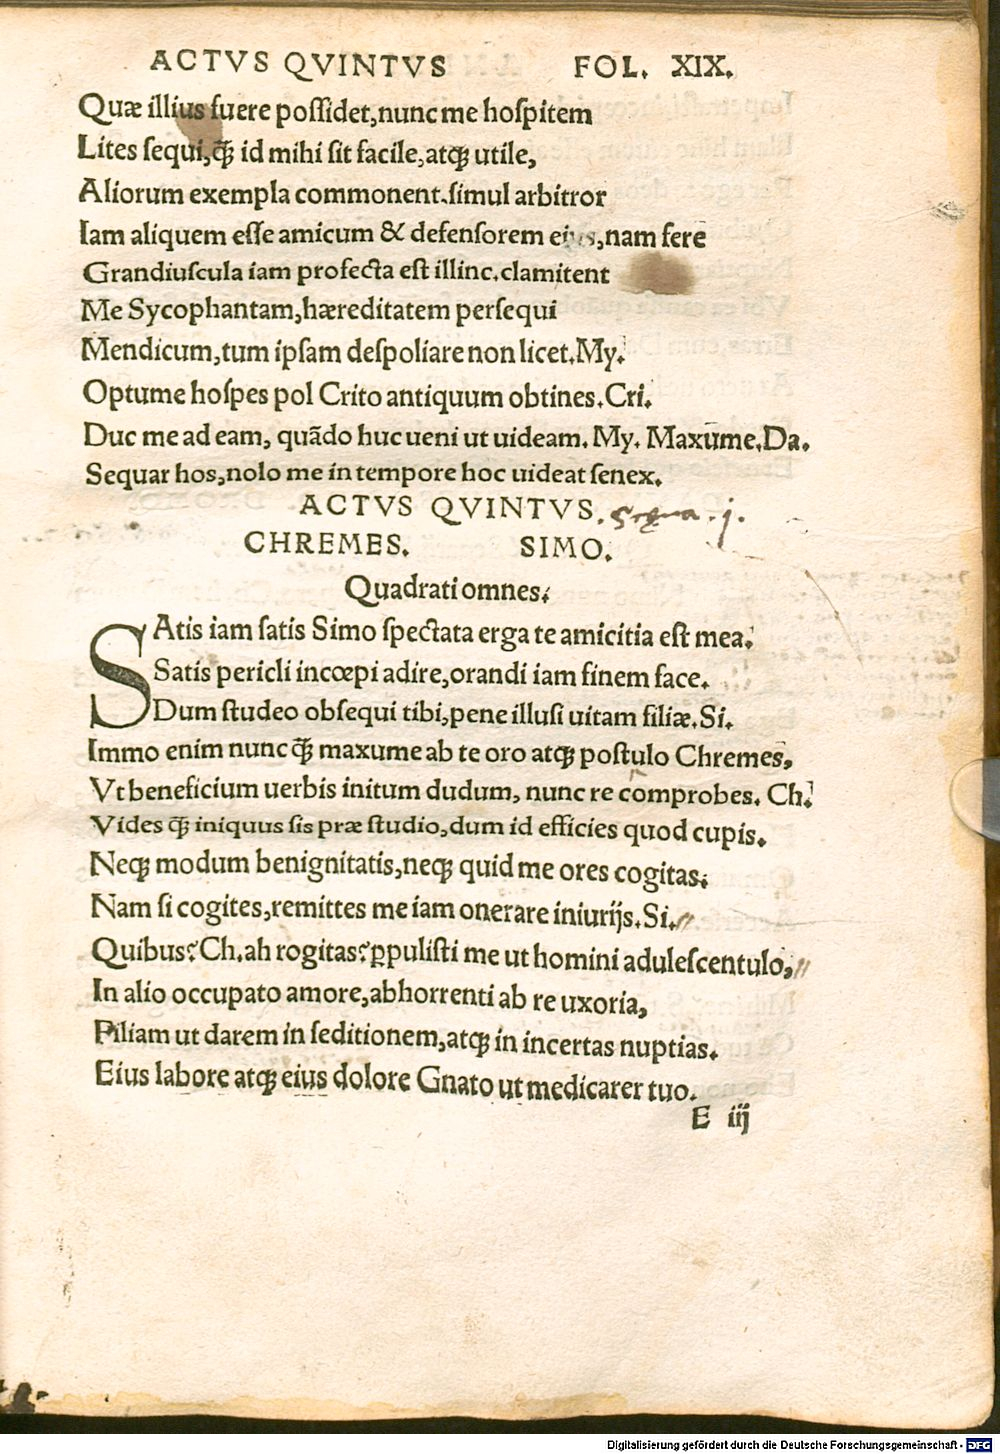 ACTVS QVINTVS FOL. XIX.
Quæ illius fuere poſſidet,nunc me hoſpitem
Lites ſequi,q̄ꝫ id mihi ſit facile,atqꝫ utile,
Aliorum exempla commonent.ſimul arbitror
Iam aliquem eſſe amicum & defenſorem eius,nam fere
Grandiuſcula iam profecta eſt illinc.clamitent
Me Sycophantam,hæreditatem perſequi
Mendicum,tum ipſam deſpoliare non licet.My.
Optume hoſpes pol Crito antiquum obtines.Cri.
Duc me ad eam, quādo huc ueni ut uideam. My. Maxume.Da.
Sequar hos,nolo me in tempore hoc uideat ſenex.
ACTVS QVINTVS.
CHREMES. SIMO.
Quadrati omnes.
SAtis iam ſatis Simo ſpectata erga te amicitia eſt mea.
Satis pericli incœpi adire,orandi iam finem face.
Dum ſtudeo obſequi tibi,pene illuſi uitam filiæ.Si.
Immo enim nunc q̄ꝫ maxume ab te oro atqꝫ poſtulo Chremes,
Vt beneficium uerbis initum dudum, nunc re comprobes. Ch.
Vides q̄ꝫ iniquus ſis præ ſtudio,dum id efficies quod cupis.
Neqꝫ modum benignitatis,neqꝫ quid me ores cogitas.
Nam ſi cogites,remittes me iam onerare iniurijs.Si.
Quibus?Ch.ah rogitas?ꝑpuliſti me ut homini aduleſcentulo,
In alio occupato amore,abhorrenti ab re uxoria,
Filiam ut darem in ſeditionem,atqꝫ in incertas nuptias.
Eius labore atqꝫ eius dolore Gnato ut medicarer tuo.
E iij
Digitalisierung gefördert durch die Deutsche Forschungsgemeinschaft - DFG